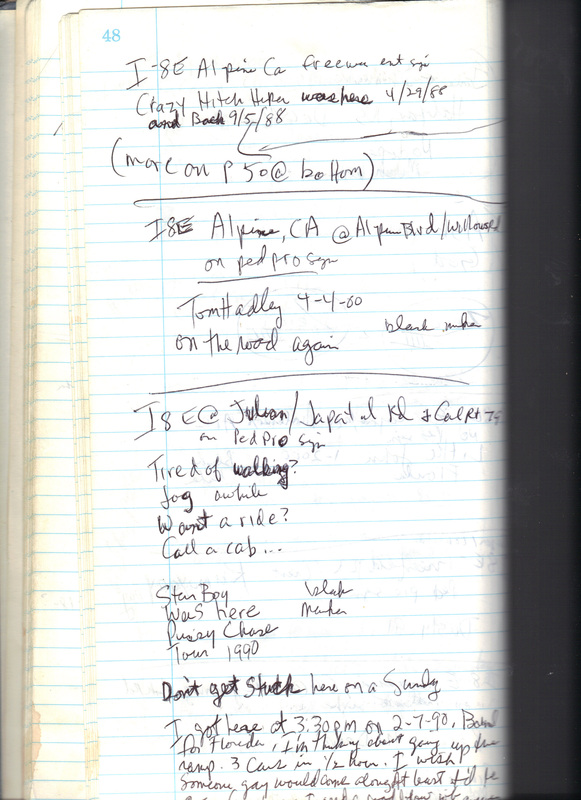 48
I-8E Alpine Ca freeway ent sign
Crazy Hitch Hiker was here 4/29/88
and Back 9/5/88
(more on p 50 @ bottom)
I8E Alpine, CA @ Alpine Blvd/Willows Rd
on ped pro sign
Tom Hadley 4-4-00
on the road again
black marker
I8E @ Julian/Japatul Rd + Cal Rt 79
on Ped Pro sign
Tired of walking?
Jog awhile
Want a ride?
Call a cab...
Stan Boy black
was here marker
Chase
Tour 1990
Don't get Stuck here on a Sunday
I got here at 3:30 pm on 2-7-90, Bound
for Florida, I'm thinking about going up the
ramp. 3 Cars in 1/2 hour. I wish
someone gay would come along. At least I'd be